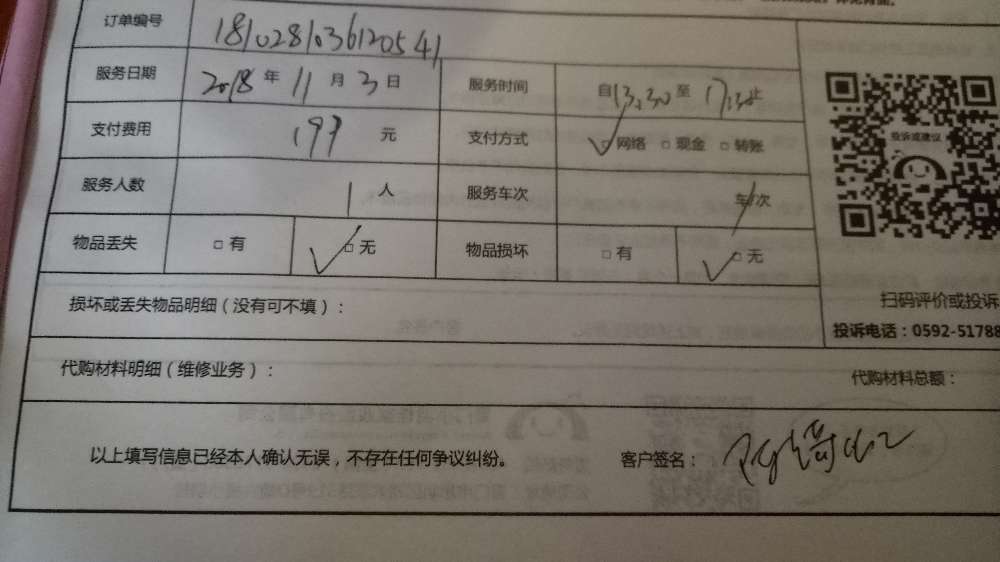 订单编号 1810281036120541
服务日期 2018 年 11 月 3 日 服务时间 自 13:30 至 17:30 止
支付费用 197 元 支付方式 □ 网络 □ 现金 □ 转账
投诉或建议
服务人数 1 人 服务车次 车/次
物品丢失 □ 有 □ 无 物品损坏 □ 有 □ 无
损坏或丢失物品明细（没有可不填）：
扫码评价或投诉
投诉电话：0592-51788
代购材料明细（维修业务）：
代购材料总额：
以上填写信息已经本人确认无误，不存在任何争议纠纷。 客户签名：